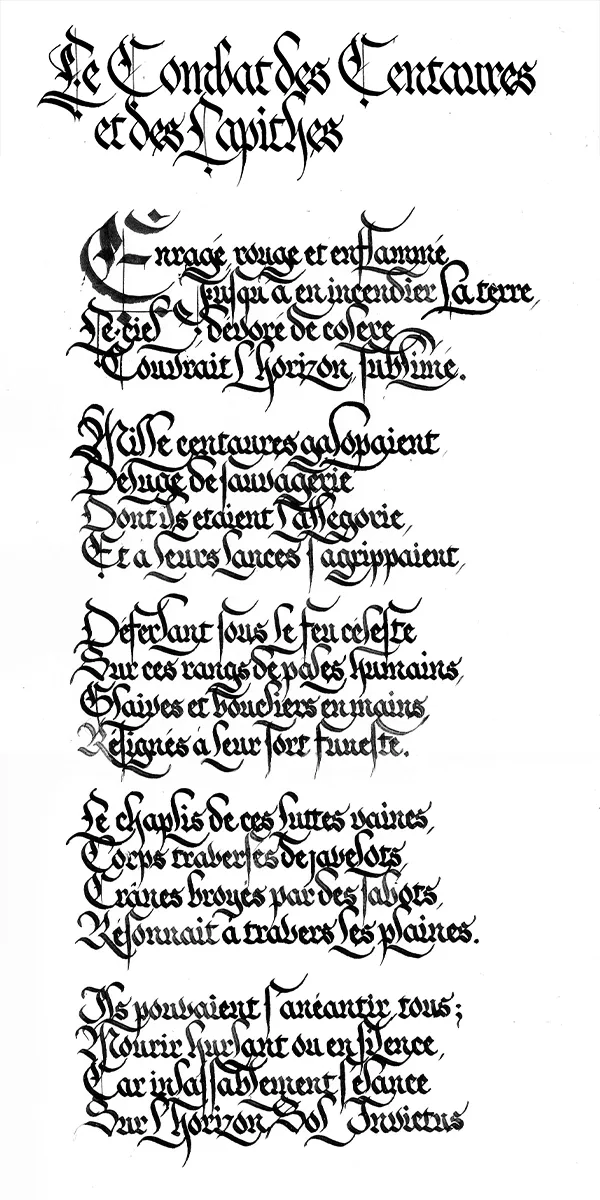 Le Combat des Centaures
et des Lapithes
Enragé, rouge et enflammé,
Jusqu'à en incendier la terre,
Le ciel, dévoré de colère,
Couvrait l'horizon sublime.
Mille centaures galopaient,
Déluge de sauvagerie
Dont ils étaient l'allégorie,
Et à leurs lances s'agrippaient,
Déferlant sous le feu céleste
Sur ces rangs de pâles humains,
Glaives et boucliers en mains,
Résignés à leur sort funeste.
Le chaplis de ces luttes vaines,
Corps traversés de javelots,
Crânes broyés par des sabots,
Résonnait à travers les plaines.
Ils pouvaient s'anéantir tous;
Mourir hurlant ou en silence,
Car inlassablement s'élance
Sur l'horizon, Sol Invictus